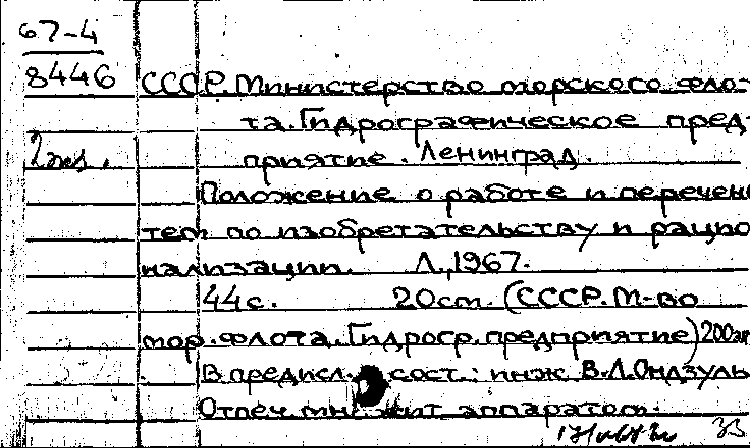 67-4
8446 СССР. Министерство морского фло-
та. Гидрографическое пред-
2экз. приятие. Ленинград.
Положение о работе и перечень
тем по изобретательству и рацио-
нализации. Л., 1967.
44с. 20см. (СССР. М-во
мор. флота. Гидрогр. предприятие) 200эк
В предисл. сост.: инж. В.Л. Ондзуль
Отпеч. множит. аппаратом.